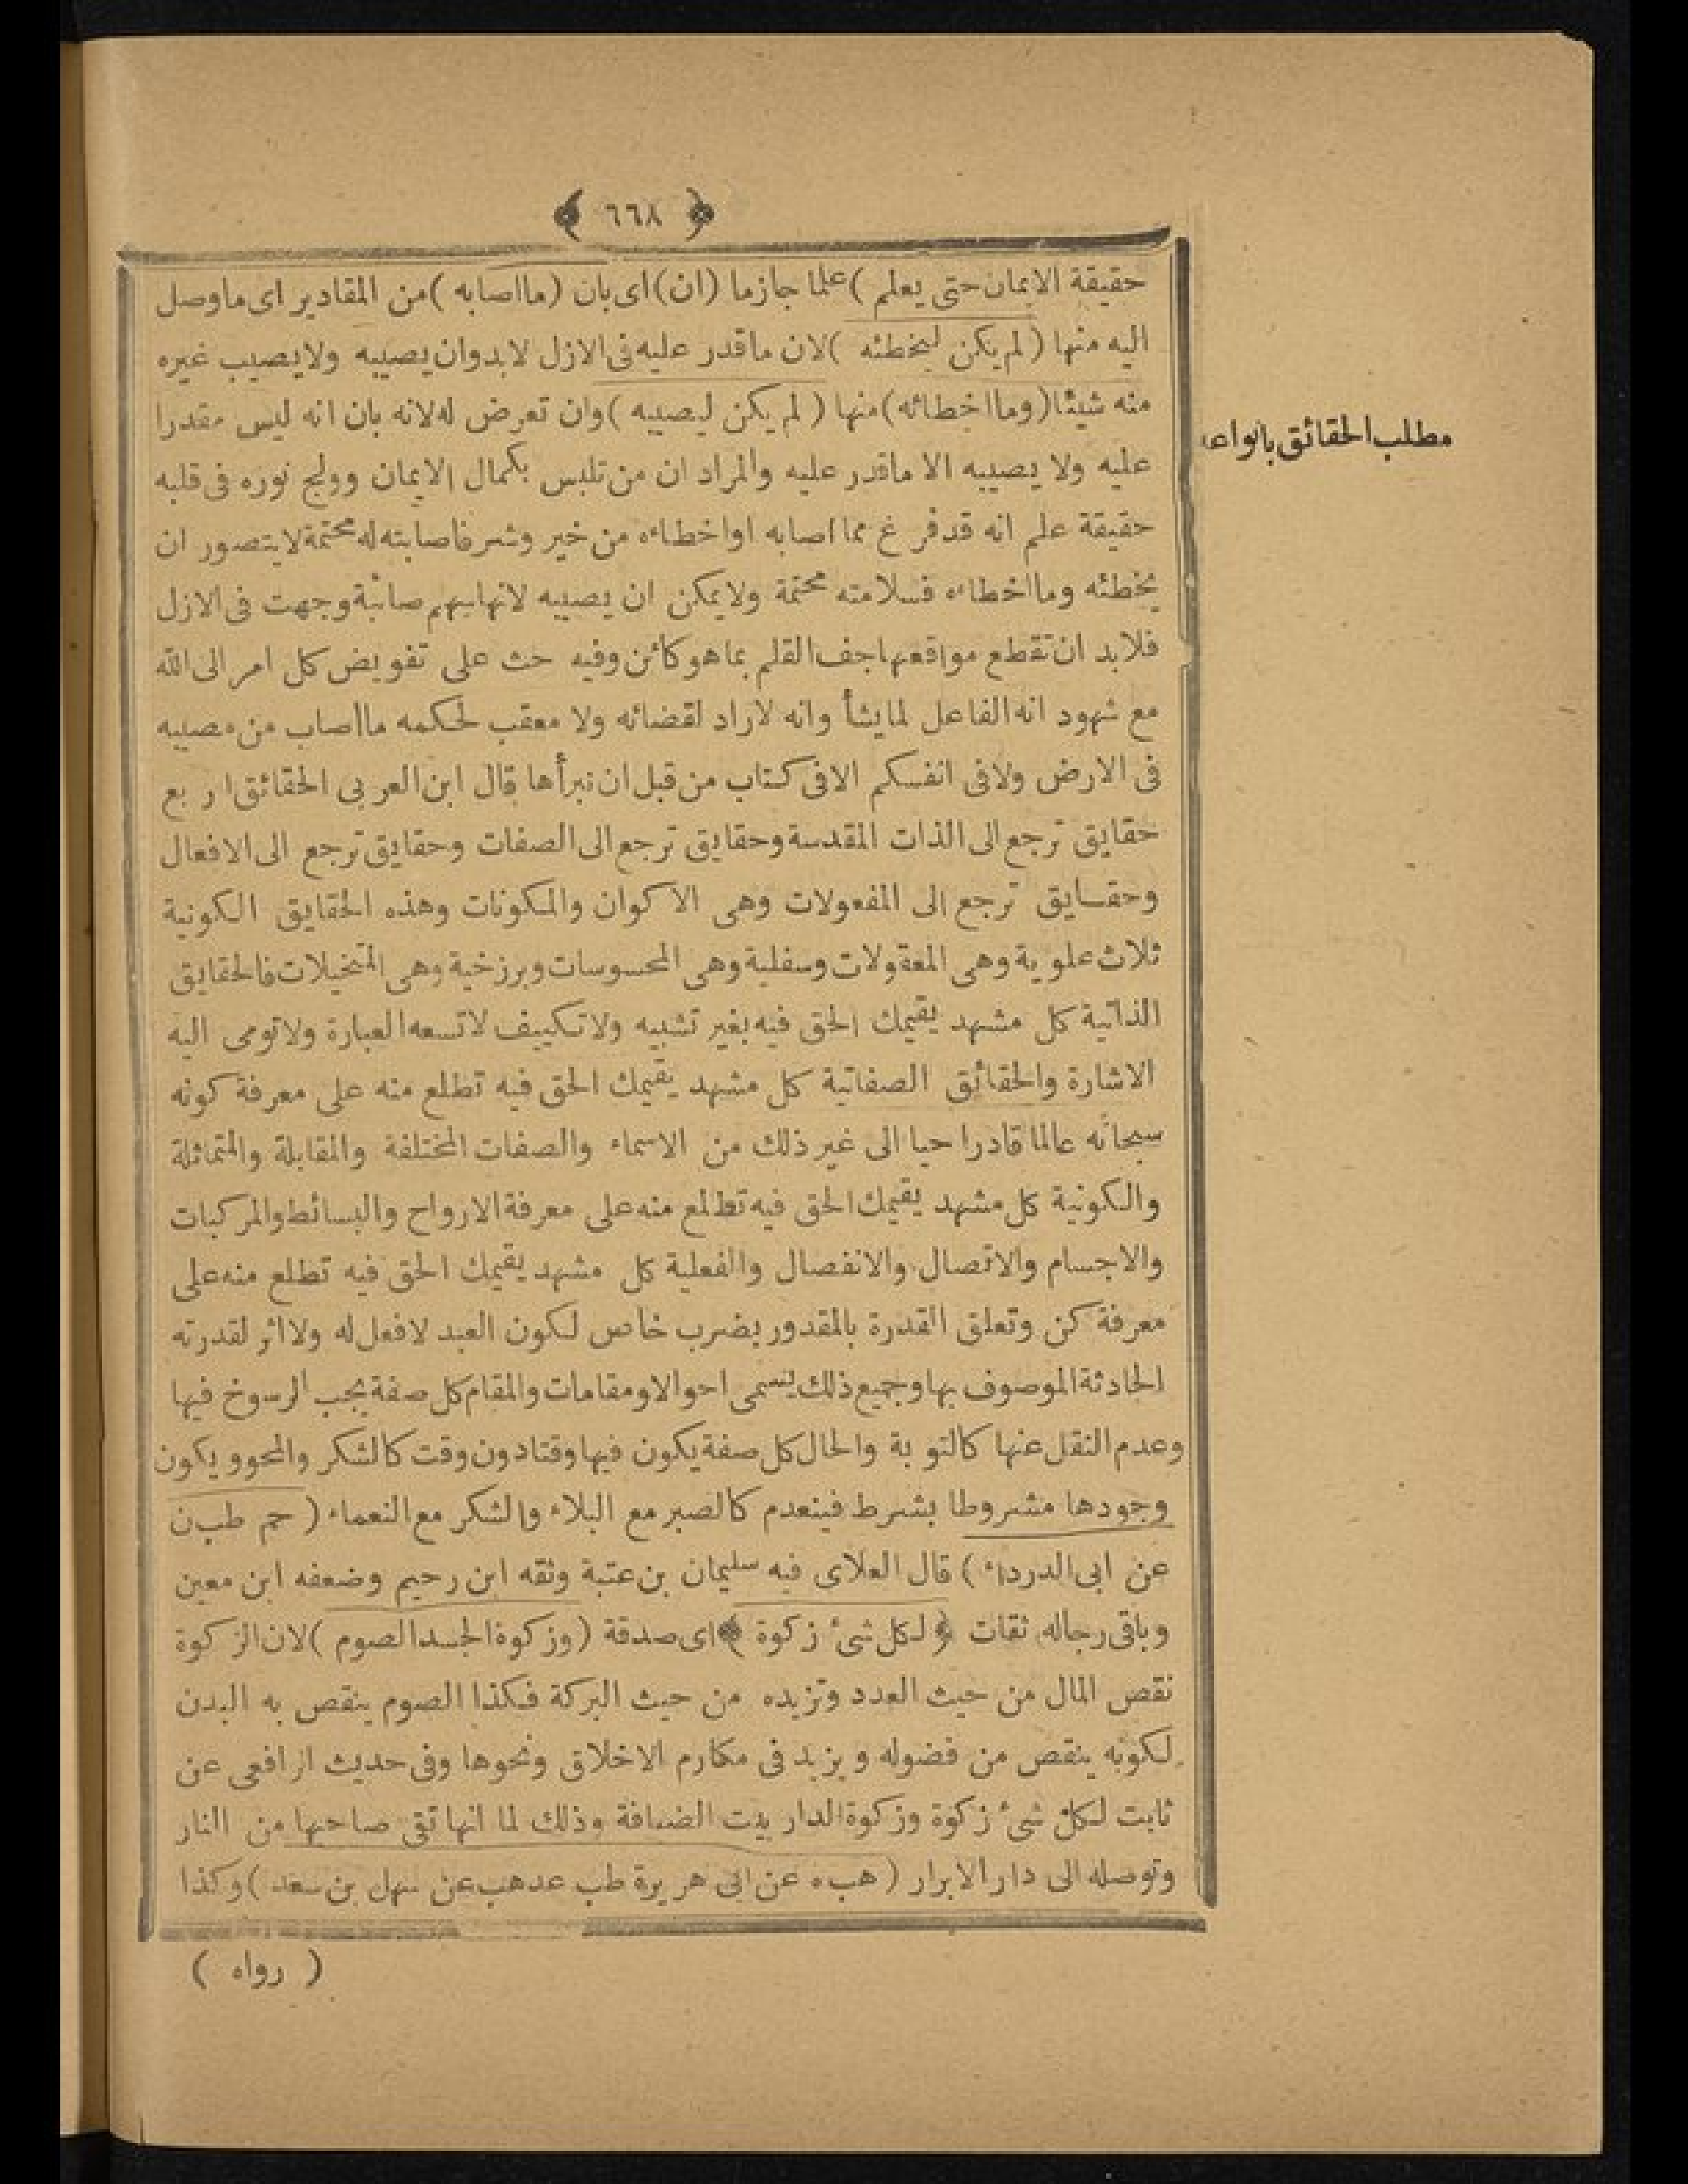 ﴿ ٦٦٨ ﴾
حقيقة الايمان حتى يعلم ) علما جازما (ان) اى بان (ما اصابه ) من المقادير اى ما وصل
اليه منها ( لم يكن ليخطئه ) لان ما قدر عليه فى الازل لابد وان يصيبه ولا يصيب غيره
منه شيئا (وما اخطائه) منها ( لم يكن ليصيبه ) وان تعرض له لانه بان انه ليس مقدرا
مطلب الحقائق بانواعه
عليه ولا يصيبه الا ما قدر عليه والمراد ان من تلبس بكمال الايمان وولج نوره فى قلبه
حقيقة علم انه قد فر غ مما اصابه او اخطاءه من خير وشر فاصابته له محتمة لا يتصور ان
يخطئه وما اخطاءه فسلامته محتمة ولا يمكن ان يصيبه لانها سهم صائبة وجهت فى الازل
فلا بد ان تقطع مواقعها جف القلم بما هو كائن وفيه حث على تفويض كل امر الى الله
مع شهود انه الفاعل لما يشأ وانه لاراد لقضائه ولا معقب لحكمه ما اصاب من مصيبه
فى الارض ولا فى انفسكم الا فى كتاب من قبل ان نبرأها قال ابن العربى الحقائق ار بع
حقايق ترجع الى الذات المقدسة وحقايق ترجع الى الصفات وحقايق ترجع الى الافعال
وحقايق ترجع الى المفعولات وهى الاكوان والمكونات وهذه الحقايق الكونية
ثلاث علوية وهى المعقولات وسفلية وهى المحسوسات وبرزخية وهى المتخيلات فالحقايق
الذاتية كل مشهد يقيمك الحق فيه بغير تشبيه ولا تكييف لا تسعه العبارة ولا تومى اليه
الاشارة والحقائق الصفاتية كل مشهد يقيمك الحق فيه تطلع منه على معرفة كونه
سبحانه عالما قادرا حيا الى غير ذلك من الاسماء والصفات المختلفة والمقابلة والمتماثلة
والكونية كل مشهد يقيمك الحق فيه تطلع منه على معرفة الارواح والبسائط والمركبات
والاجسام والاتصال والانفصال والفعلية كل مشهد يقيمك الحق فيه تطلع منه على
معرفة كن وتعلق القدرة بالمقدور بضرب خاص لكون العبد لا فعل له ولا اثر لقدرته
الحادثة الموصوف بها وجميع ذلك يسمى احوالا ومقامات والمقام كل صفة يجب الرسوخ فيها
وعدم النقل عنها كالتو بة والحال كل صفة يكون فيها وقتا دون وقت كالشكر والمحو ويكون
وجودها مشروطا بشرط فينعدم كالصبر مع البلاء والشكر مع النعماء ( حم طب ن
عن ابى الدرداء ) قال العلاى فيه سليمان بن عتبة وثقه ابن رحيم وضعفه ابن معين
وباقى رجاله ثقات ﴿ لكل شىء زكوة ﴾ اى صدقة ( وزكوة الجسد الصوم ) لان الزكوة
نقص المال من حيث العدد وتزيده من حيث البركة فكذا الصوم ينقص به البدن
لكونه ينقص من فضوله ويزيد فى مكارم الاخلاق ونحوها وفى حديث الرافعى عن
ثابت لكل شىء زكوة وزكوة الدار بيت الضيافة وذلك لما انها تقى صاحبها من النار
وتوصله الى دار الابرار ( هب ه عن ابى هريرة طب عد هب عن سهل بن سعد ) وكذا
( رواه )